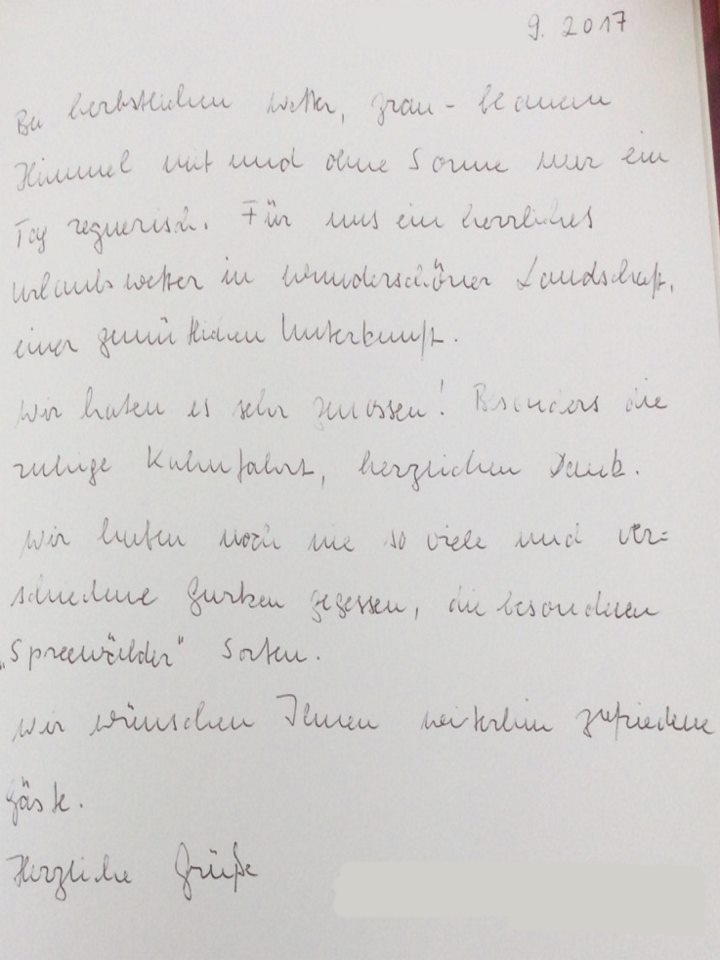 9. 2017
Bei herbstlichem Wetter, grau-blauem
Himmel mit und ohne Sonne nur ein
Tag regnerisch. Für uns ein herrliches
Urlaubswetter in wunderschöner Landschaft,
einer gemütlichen Unterkunft.
Wir haben es sehr genossen! Besonders die
ruhige Kahnfahrt, herzlichen Dank.
Wir haben noch nie so viele und ver=
schiedene Gurken gegessen, die besonderen
„Spreewälder" Sorten.
Wir wünschen Ihnen weiterhin zufriedene
Gäste.
Herzliche Grüße